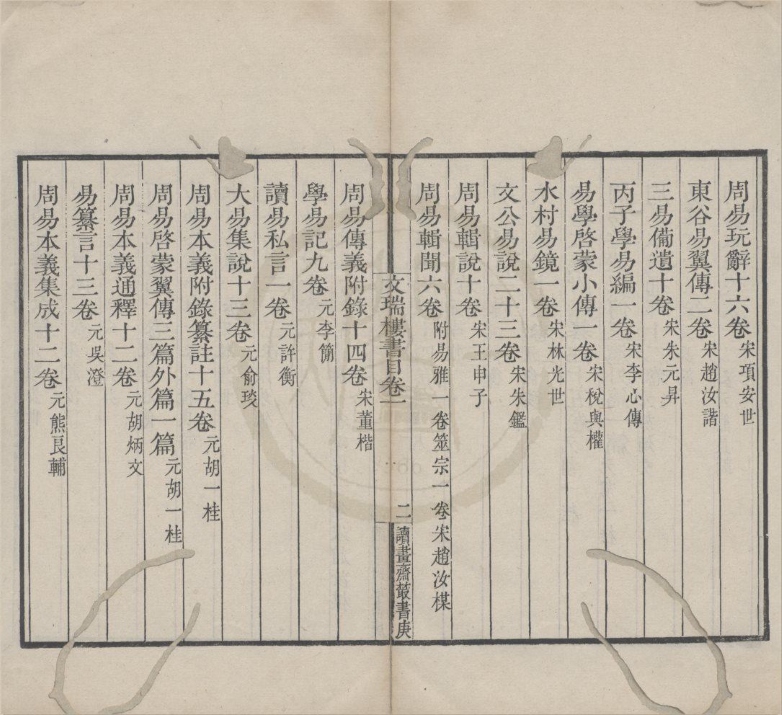 周易玩辭十六卷宋項安世
東谷易翼傳二卷宋趙汝諧
三易備遺十卷宋朱元昇
丙子學易編一卷宋李心傳
易學啓蒙小傳一卷宋稅與權
水村易鏡一卷宋林光世
文公易說二十三卷宋朱鑑
周易輯說十卷宋王申子
周易輯聞六卷附易雅一卷筮宗一卷宋趙汝楳
文瑞樓書目卷一
二
讀畫齋叢書庚
周易傳義附錄十四卷宋董楷
學易記九卷元李簡
讀易私言一卷元許衡
大易集說十三卷元俞琰
周易本義附錄纂註十五卷元胡一桂
周易啓蒙翼傳三篇外篇一篇元胡一桂
周易本義通釋十二卷元胡炳文
易纂言十三卷元吳澄
周易本義集成十二卷元熊良輔